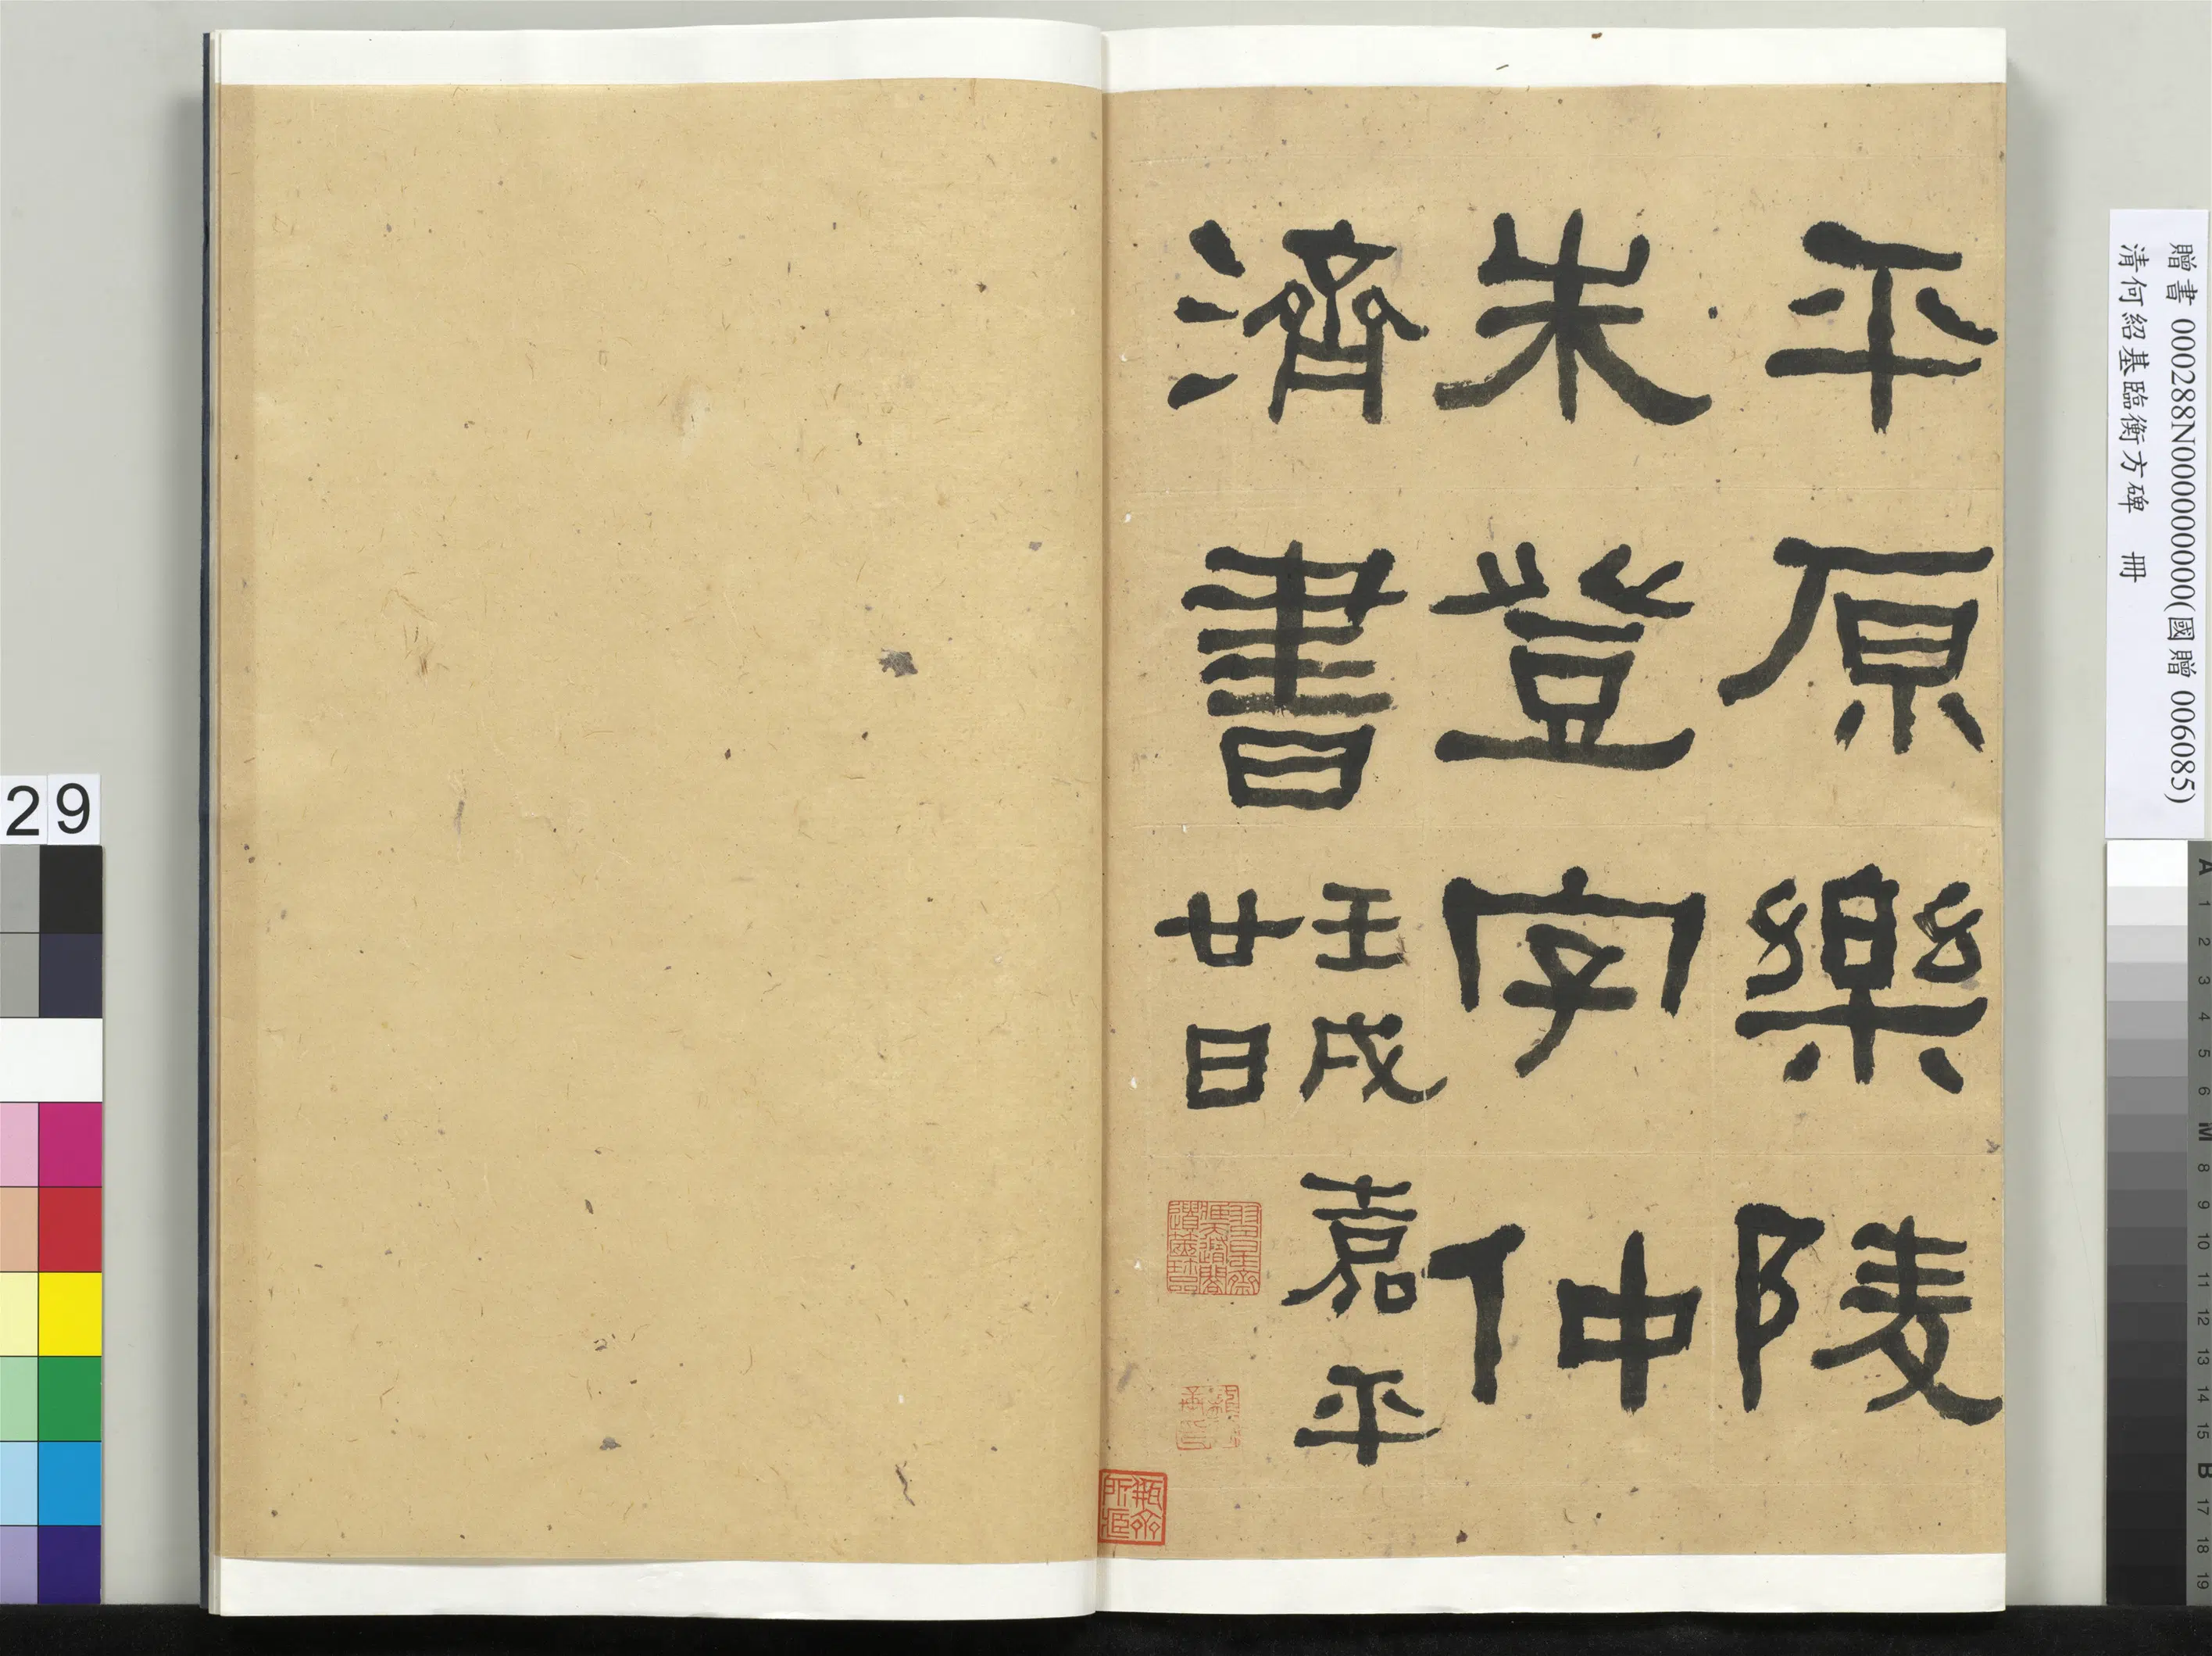 平原樂陵
朱登字仲
濟書
壬戌嘉平
廿日
贈書 000288N000000000(國贈 006085)
清何紹基臨衡方碑 冊
29
A 1 2 3 4 5 6 M 8 9 10 11 12 13 14 15 B 17 18 19